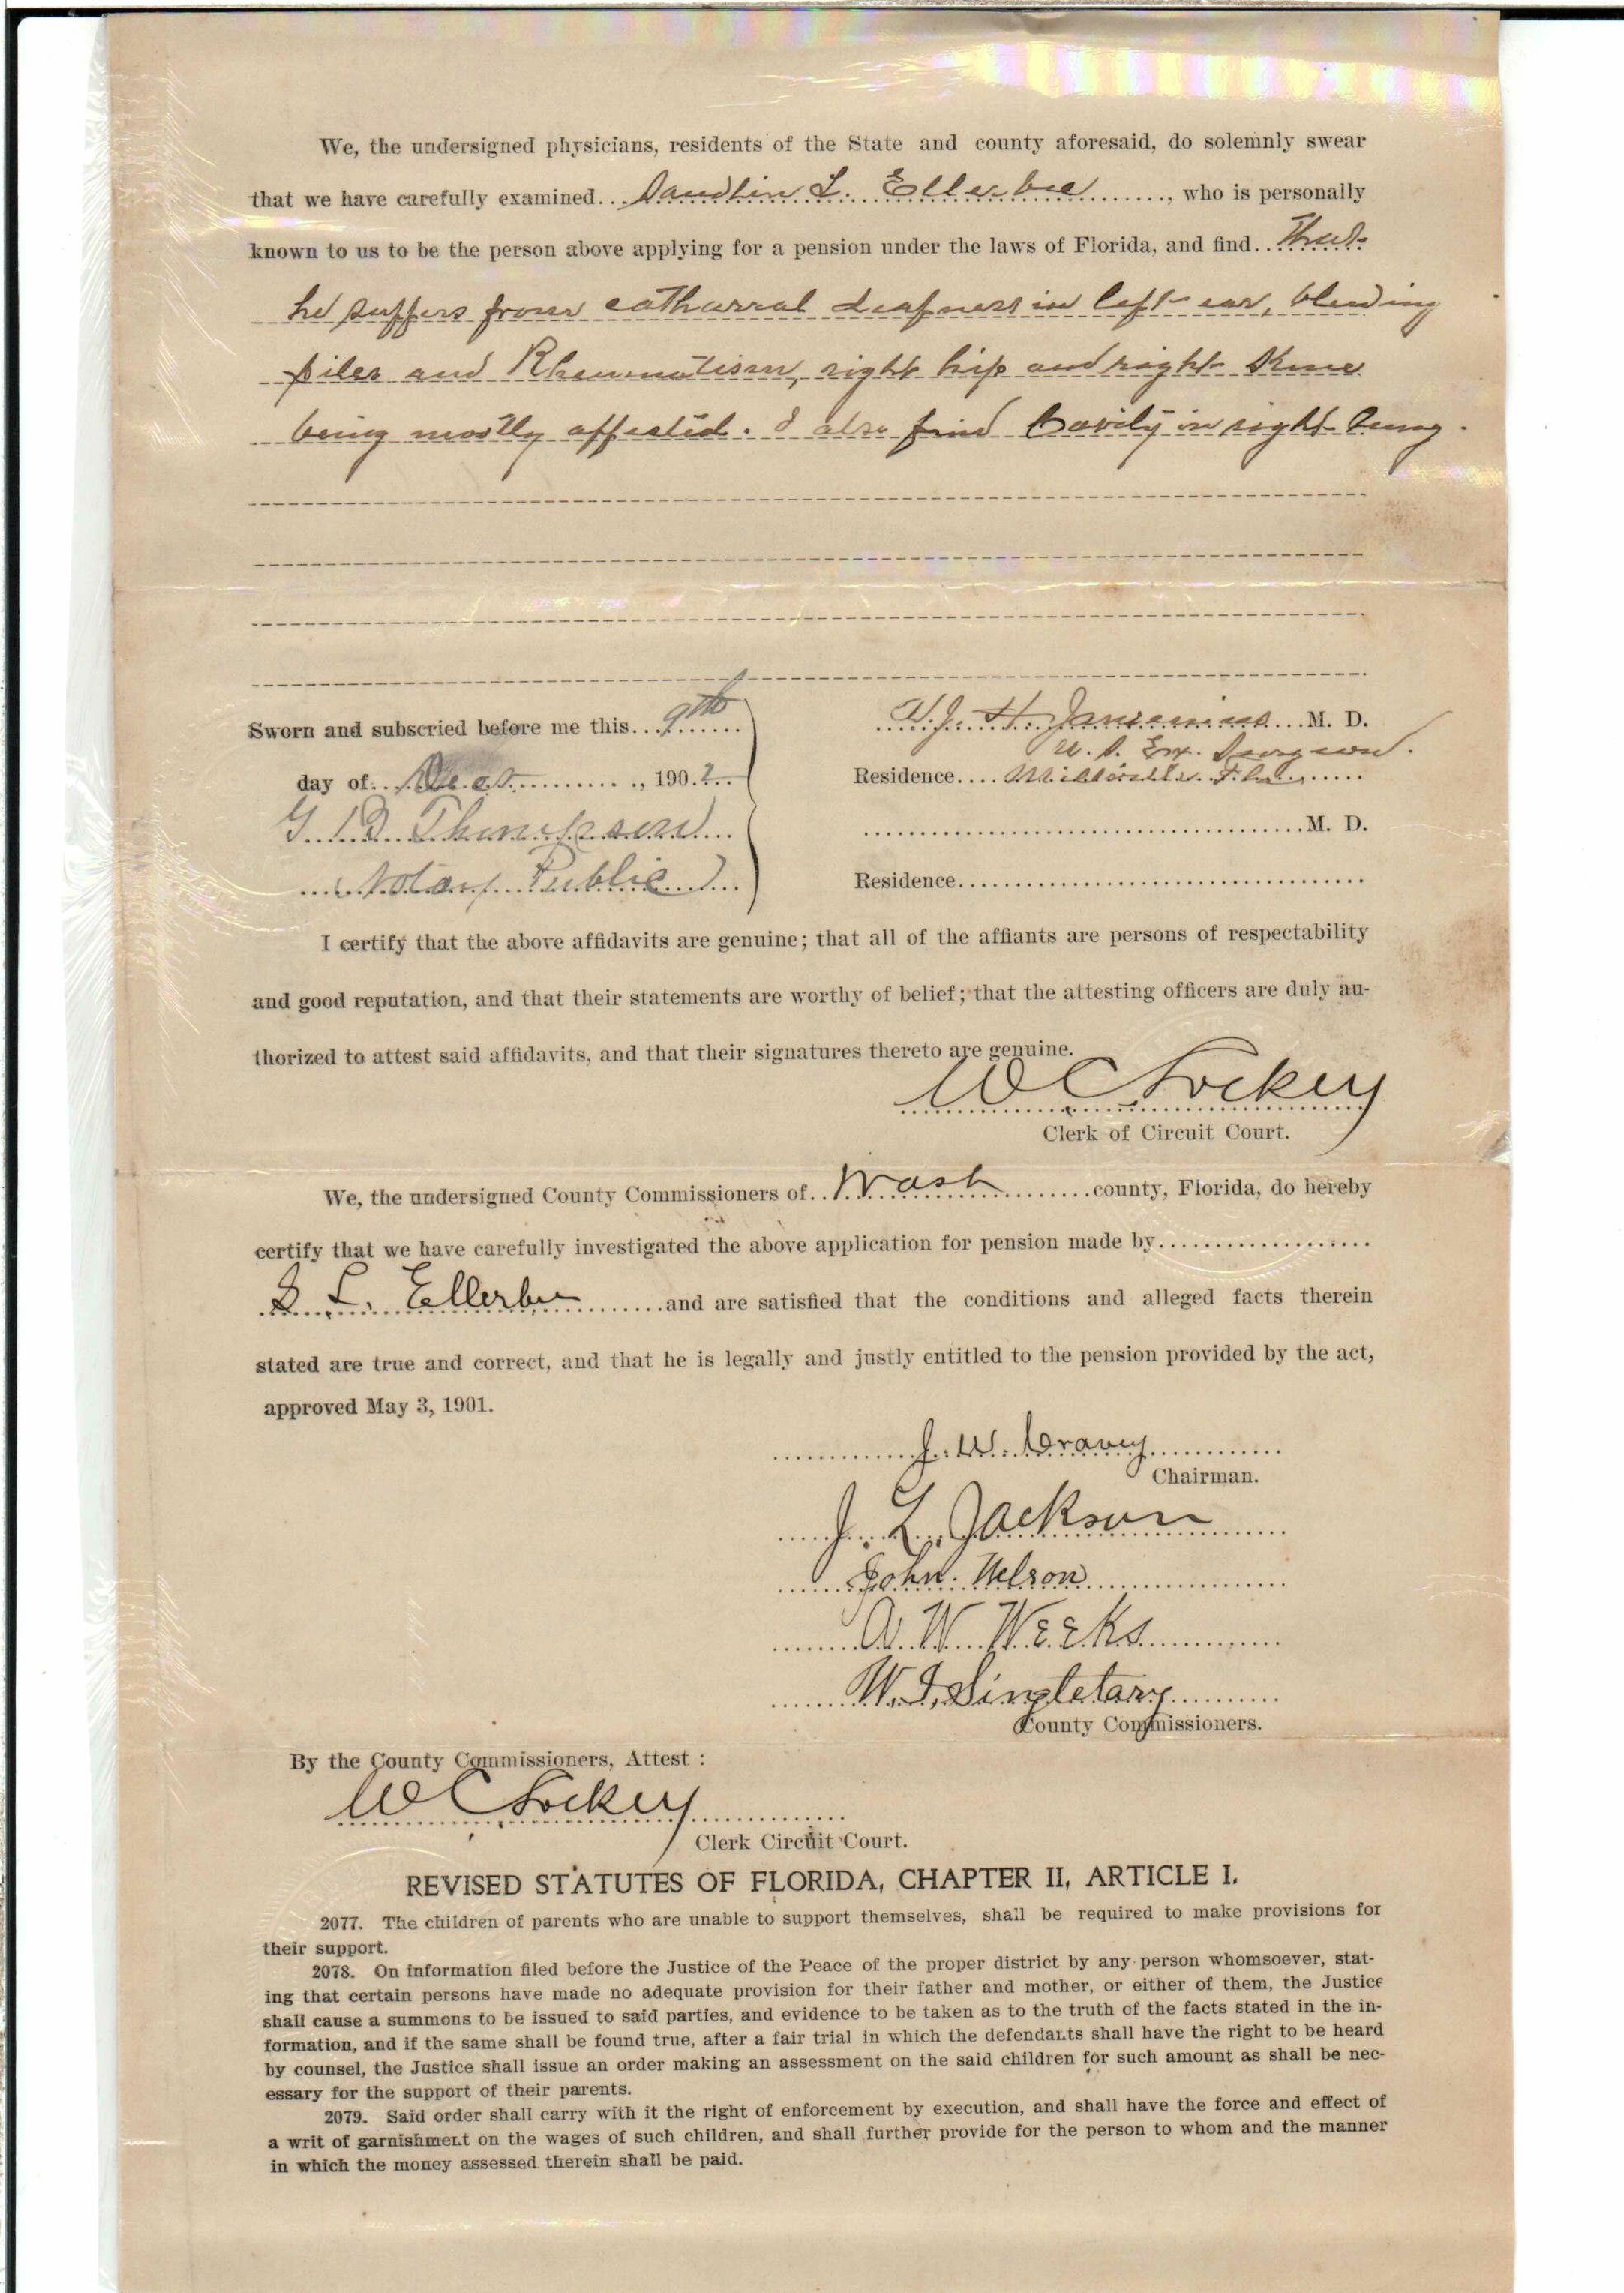 We, the undersigned physicians, residents of the State and county aforesaid, do solemnly swear
that we have carefully examined Dandlin L. Ellerbee, who is personally
known to us to be the person above applying for a pension under the laws of Florida, and find That
he suffers from catharral deafness in left ear, bleeding
piles and Rheumatism, right hip and right Knee
being mostly affected. I also find Cavity in right lung.
Sworn and subscried before me this 9th
day of , 1902
G B Thompson
(Notary Public)
H. M. D.
U. S. Ex. Surgeon.
Residence Fla.
M. D.
Residence
I certify that the above affidavits are genuine; that all of the affiants are persons of respectability
and good reputation, and that their statements are worthy of belief; that the attesting officers are duly au-
thorized to attest said affidavits, and that their signatures thereto are genuine.
W C Lockey
Clerk of Circuit Court.
We, the undersigned County Commissioners of Wash county, Florida, do hereby
certify that we have carefully investigated the above application for pension made by
L. Ellerbee and are satisfied that the conditions and alleged facts therein
stated are true and correct, and that he is legally and justly entitled to the pension provided by the act,
approved May 3, 1901.
J. W. Cravey
Chairman.
J. L. Jackson
John Nelson
A. W. Weeks
W. I. Singletary
County Commissioners.
By the County Commissioners, Attest :
W C Lockey
Clerk Circuit Court.
REVISED STATUTES OF FLORIDA, CHAPTER II, ARTICLE I.
2077. The children of parents who are unable to support themselves, shall be required to make provisions for
their support.
2078. On information filed before the Justice of the Peace of the proper district by any person whomsoever, stat-
ing that certain persons have made no adequate provision for their father and mother, or either of them, the Justice
shall cause a summons to be issued to said parties, and evidence to be taken as to the truth of the facts stated in the in-
formation, and if the same shall be found true, after a fair trial in which the defendants shall have the right to be heard
by counsel, the Justice shall issue an order making an assessment on the said children for such amount as shall be nec-
essary for the support of their parents.
2079. Said order shall carry with it the right of enforcement by execution, and shall have the force and effect of
a writ of garnishment on the wages of such children, and shall further provide for the person to whom and the manner
in which the money assessed therein shall be paid.